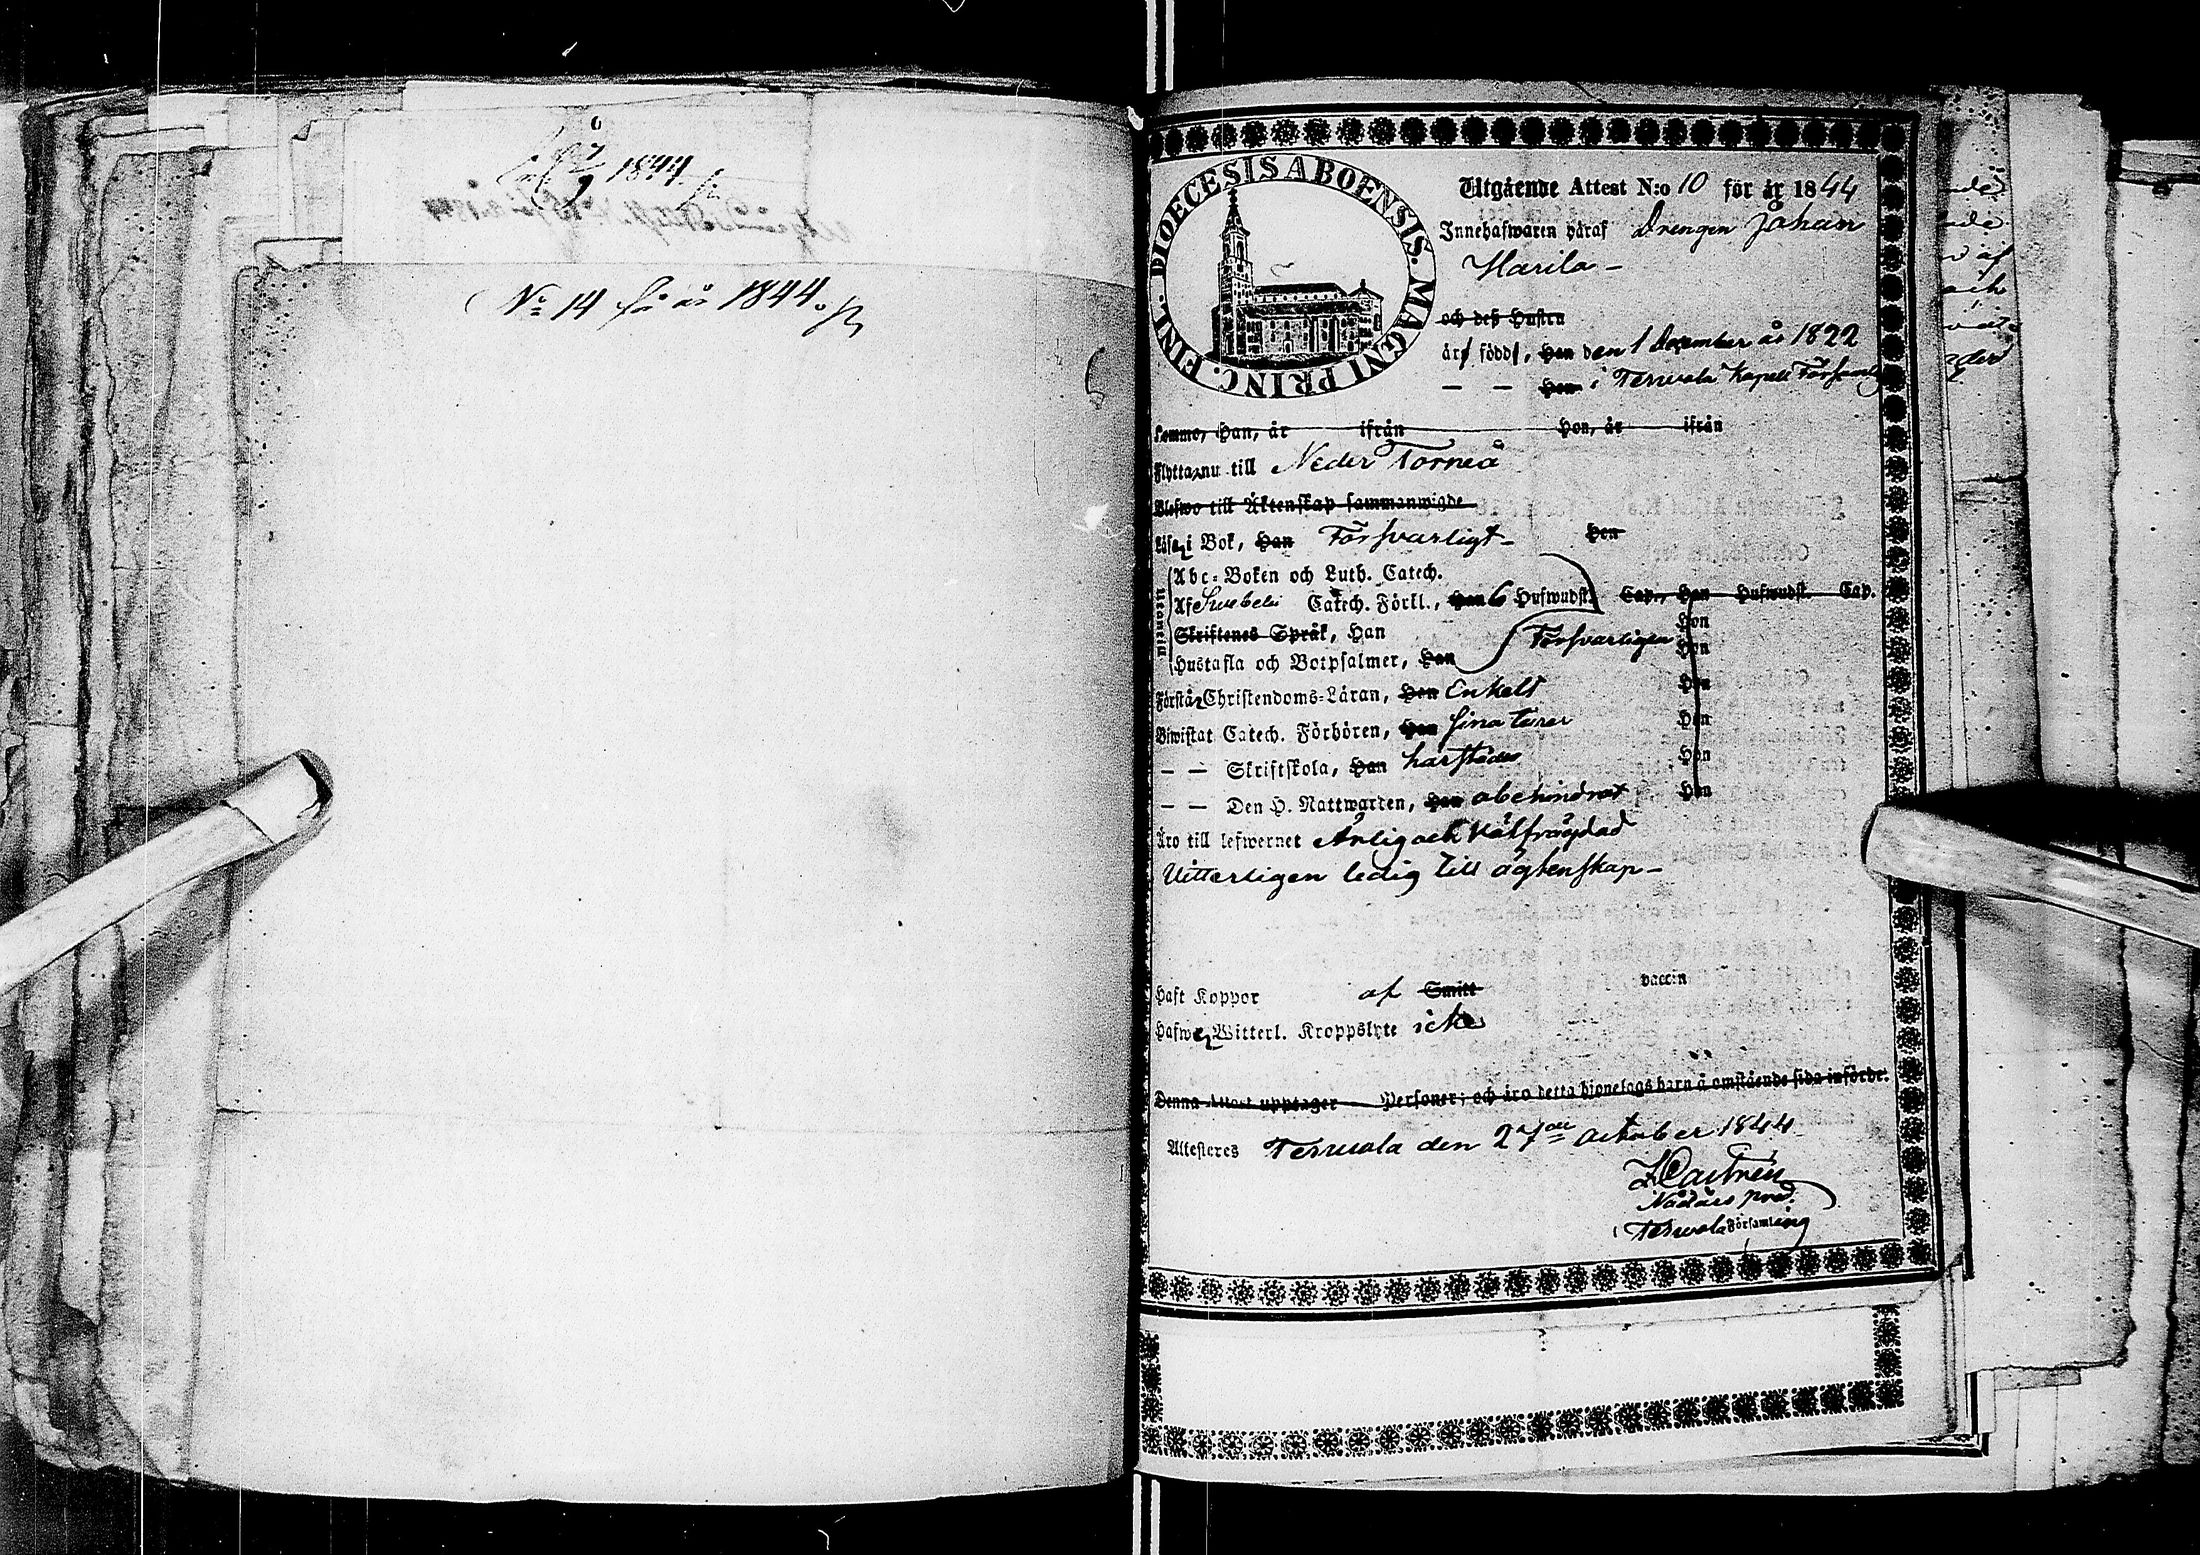 1844
No 14 för år 1844.
DIOECESIS ABOENSIS. MAGNI PRINC. FINL.
Utgående Attest N:o 10 för år 1844
Innehafwaren häraf Drengen Johan
Harila –
och deß Hustru
är född, Han den 1 December år 1822
— — Hon i Terwola Kapell Församl
Komne, Han, år ifrån Hon, år ifrån
Flytta nu till Neder Torneå
Blefwo till Äktenskap sammanwigde
Läsa i Bok, Han Försvarligt – Hon
Abc-Boken och Luth. Catech.
Af Swebelii Catech. Förkl., Han 6 Hufwudst. Cap., Hon Hufwudst. Cap.
Utantill
Skriftenes Språk, Han Försvarligen Hon
Hustafla och Botpsalmer, Han Hon
Förstå Christendoms-Läran, Han Enkelt Hon
Biwistat Catech. Förhören, Han sina turer Hon
— — Skriftskola, Han härstädes Hon
— — Den H. Nattwarden, Han obehindrat Hon
Äro till lefwernet Ärlig och Välfrägdad
Vitterligen ledig till ägtenskap –
Haft Koppor af Smitt vaccin
Hafwe Witterl. Kroppslyte icke
Denna Attest upptager Personer; och äro detta hjonelags barn å omstående sida införde.
Attesteres Terwola den 27de October 1844
Castrén
Nådårs pred.
i Terwola Församling